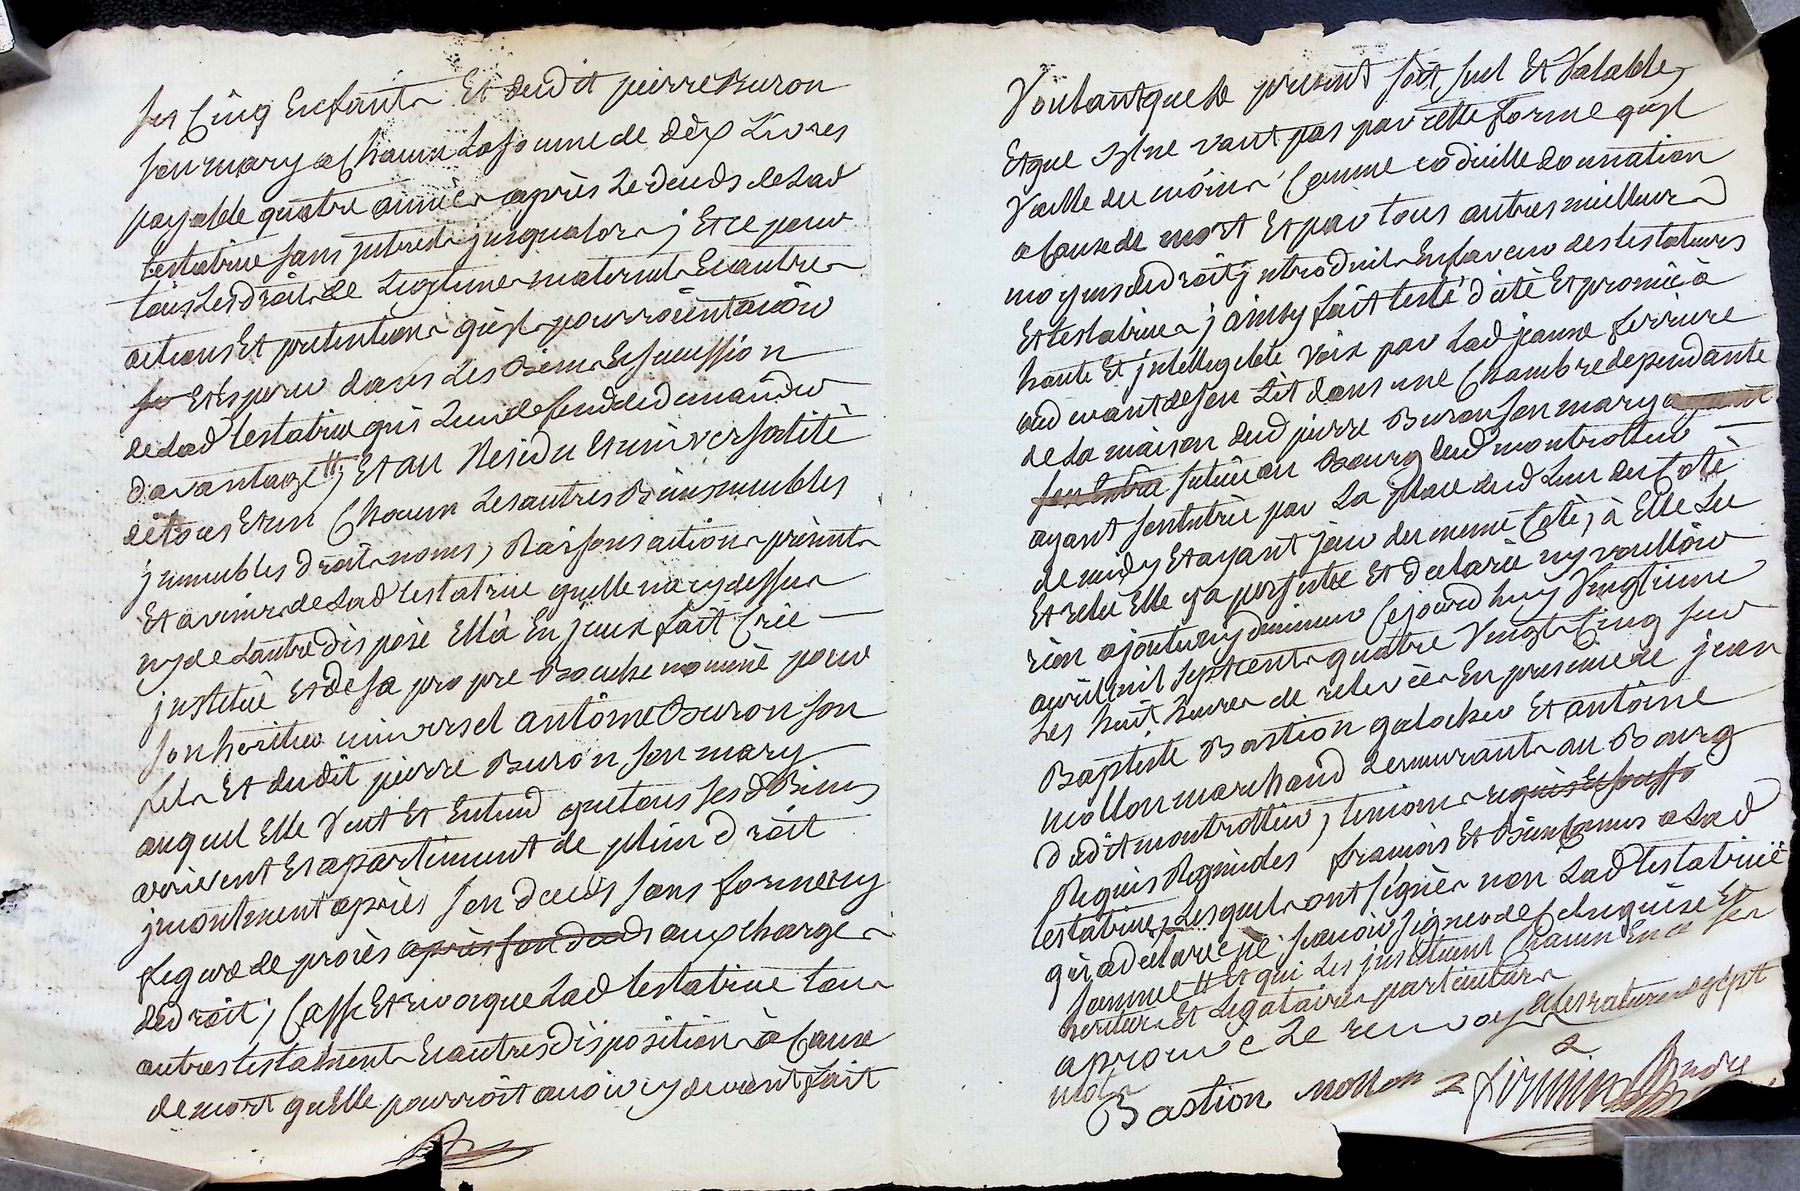 ses Cinq Enfants Et dudit pierre Buron
son mary a Chacun La somme de dix Livres
payable quatre années après Le deceds de Lad
testatrice sans jnterest jusqualors ; Et ce pour
tous Les droits de Legitime maternels Et autres
actions Et pretentions qu'ils pourroient avoir
Et Esperer dans Les Biens Et succession
de Lad testatrice qui Leur defend de demander
davantage // ; Et au Residu Et universalité
de tous Et un Chacun Les autres Biens meubles
jmmeubles droits noms, Raisons actions présents
Et avenir de Lad testatrice quelle n'a cy dessus
ny de Lautre disposé Ella En jceux fait Crée
jnstitué Et de sa propre Bouche nommé pour
son heritier universel antoine Buron son
fils Et dudit pierre Buron son mary
auquel Elle Veut Et Entend que tous sesd Biens
arrivent Et apartiennent de plein droit
jncontinent après son deceds sans forme ny
figure de procès après son deceds aux charges
de droit ; Casse Et revoque Lad testatrice tous
autres testaments Et autres disposition à Cause
de mort quelle pourroit avoir cy devant fait
Voulant que Le present soit seul Et Valable,
Et que sil ne vaut pas par cette forme quil
Vaille du moins Comme codicille donnation
a Cause de mort Et par tous autres meilleurs
moyens de droit jntroduits En faveur des testateurs
Et testatrices ; ainsy fait testé dicté Et prononcé à
haute Et jntelligible Voix par Lad jeanne ferriere
au devant de son Lit dans une Chambre dependante
de La maison dud pierre Buron son mary
située au Bourg dud montrottier
ayant son entrée par La place dud Lieu du Coté
de midy Et ayant jour du meme Coté, à Elle Lu
Et relu Elle y a persisté Et declaré ny vouloir
rien ajouter ny diminuer Cejourdhuy Vingtieme
avril mil sept cents quatre Vingts Cinq sur
Les huit heures de relevée En presence de jean
Baptiste Bastion galocher Et antoine
mollon marchand demeurants au Bourg
dudit montrottier, temoins
Requis françois Et Bien Connus a Lad
testatrice, Lesquels ont signé non Lad testatrice
qui a declaré ne scavoir signer de Ce Enquise Et
sommée // Et qui Les jnstituent Chacun En Ce Ses
heritiers Et Legataires particuliers
aprouvé Le renvoy Et Les ratures de sept
mots
Bastion mollon